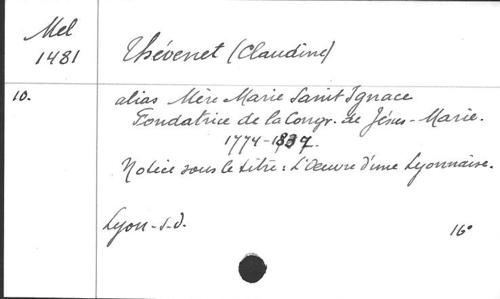 Mel
1481
Thévenet (Claudine)
10.
alias Mère Marie Saint Ignace
Fondatrice de la Congr. de Jésus-Marie.
1774-1837.
Notice sous le titre : L'Oeuvre d'une Lyonnaise.
Lyon - s.d.
16°